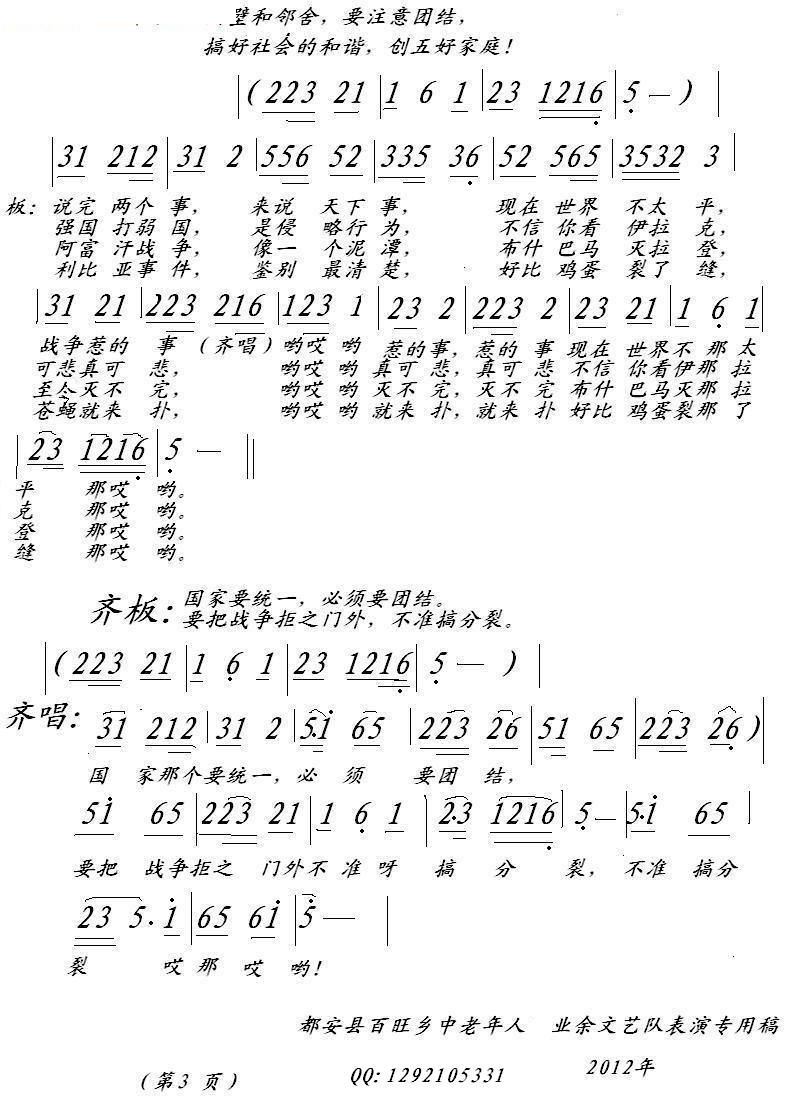 壁和邻舍，要注意团结，
搞好社会的和谐，创五好家庭！
(223 21 | 1 6 1 | 23 1216 | 5 — ) |
| 31 212 | 31 2 | 556 52 | 335 36 | 52 565 | 3532 3 |
板：说完 两个 事， 来说 天下 事， 现在 世界 不太 平，
强国 打弱 国， 是侵 略行 为， 不信 你看 伊拉 克，
阿富 汗战 争， 像一 个泥 潭， 布什 巴马 灭拉 登，
利比 亚事 件， 鉴别 最清 楚， 好比 鸡蛋 裂了 缝，
| 31 21 | 223 216 | 123 1 | 23 2 | 223 2 | 23 21 | 1 6 1 |
战争惹的 事（齐唱）哟哎 哟 惹的事，惹的 事 现在 世界不 那太
可悲真可 悲， 哟哎 哟 真可 悲，真可 悲 不信 你看伊那 拉
至今灭不 完， 哟哎 哟 灭不 完，灭不 完 布什 巴马灭那 拉
苍蝇就来 扑， 哟哎 哟 就来 扑，就来 扑 好比 鸡蛋裂那 了
| 23 1216 | 5 — ||
平 那哎 哟。
克 那哎 哟。
登 那哎 哟。
缝 那哎 哟。
齐板：国家要统一，必须要团结。
要把战争拒之门外，不准搞分裂。
| (223 21 | 1 6 1 | 23 1216 | 5 — ) |
齐唱：31 212 | 31 2 | 5·i 65 | 223 26 | 51 65 | 223 26 ) |
国 家那个要统一，必 须 要团 结，
5i 65 | 223 21 | 1 6 1 | 2·3 1216 | 5 — | 5·i 65 |
要把 战争拒之 门外不 准 呀 搞 分 裂， 不准 搞分
23 5· i | 65 6i | 5 — |
裂 哎 那 哎 哟！
都安县百旺乡中老年人 业余文艺队表演专用稿
（第3 页） QQ: 1292105331 2012年